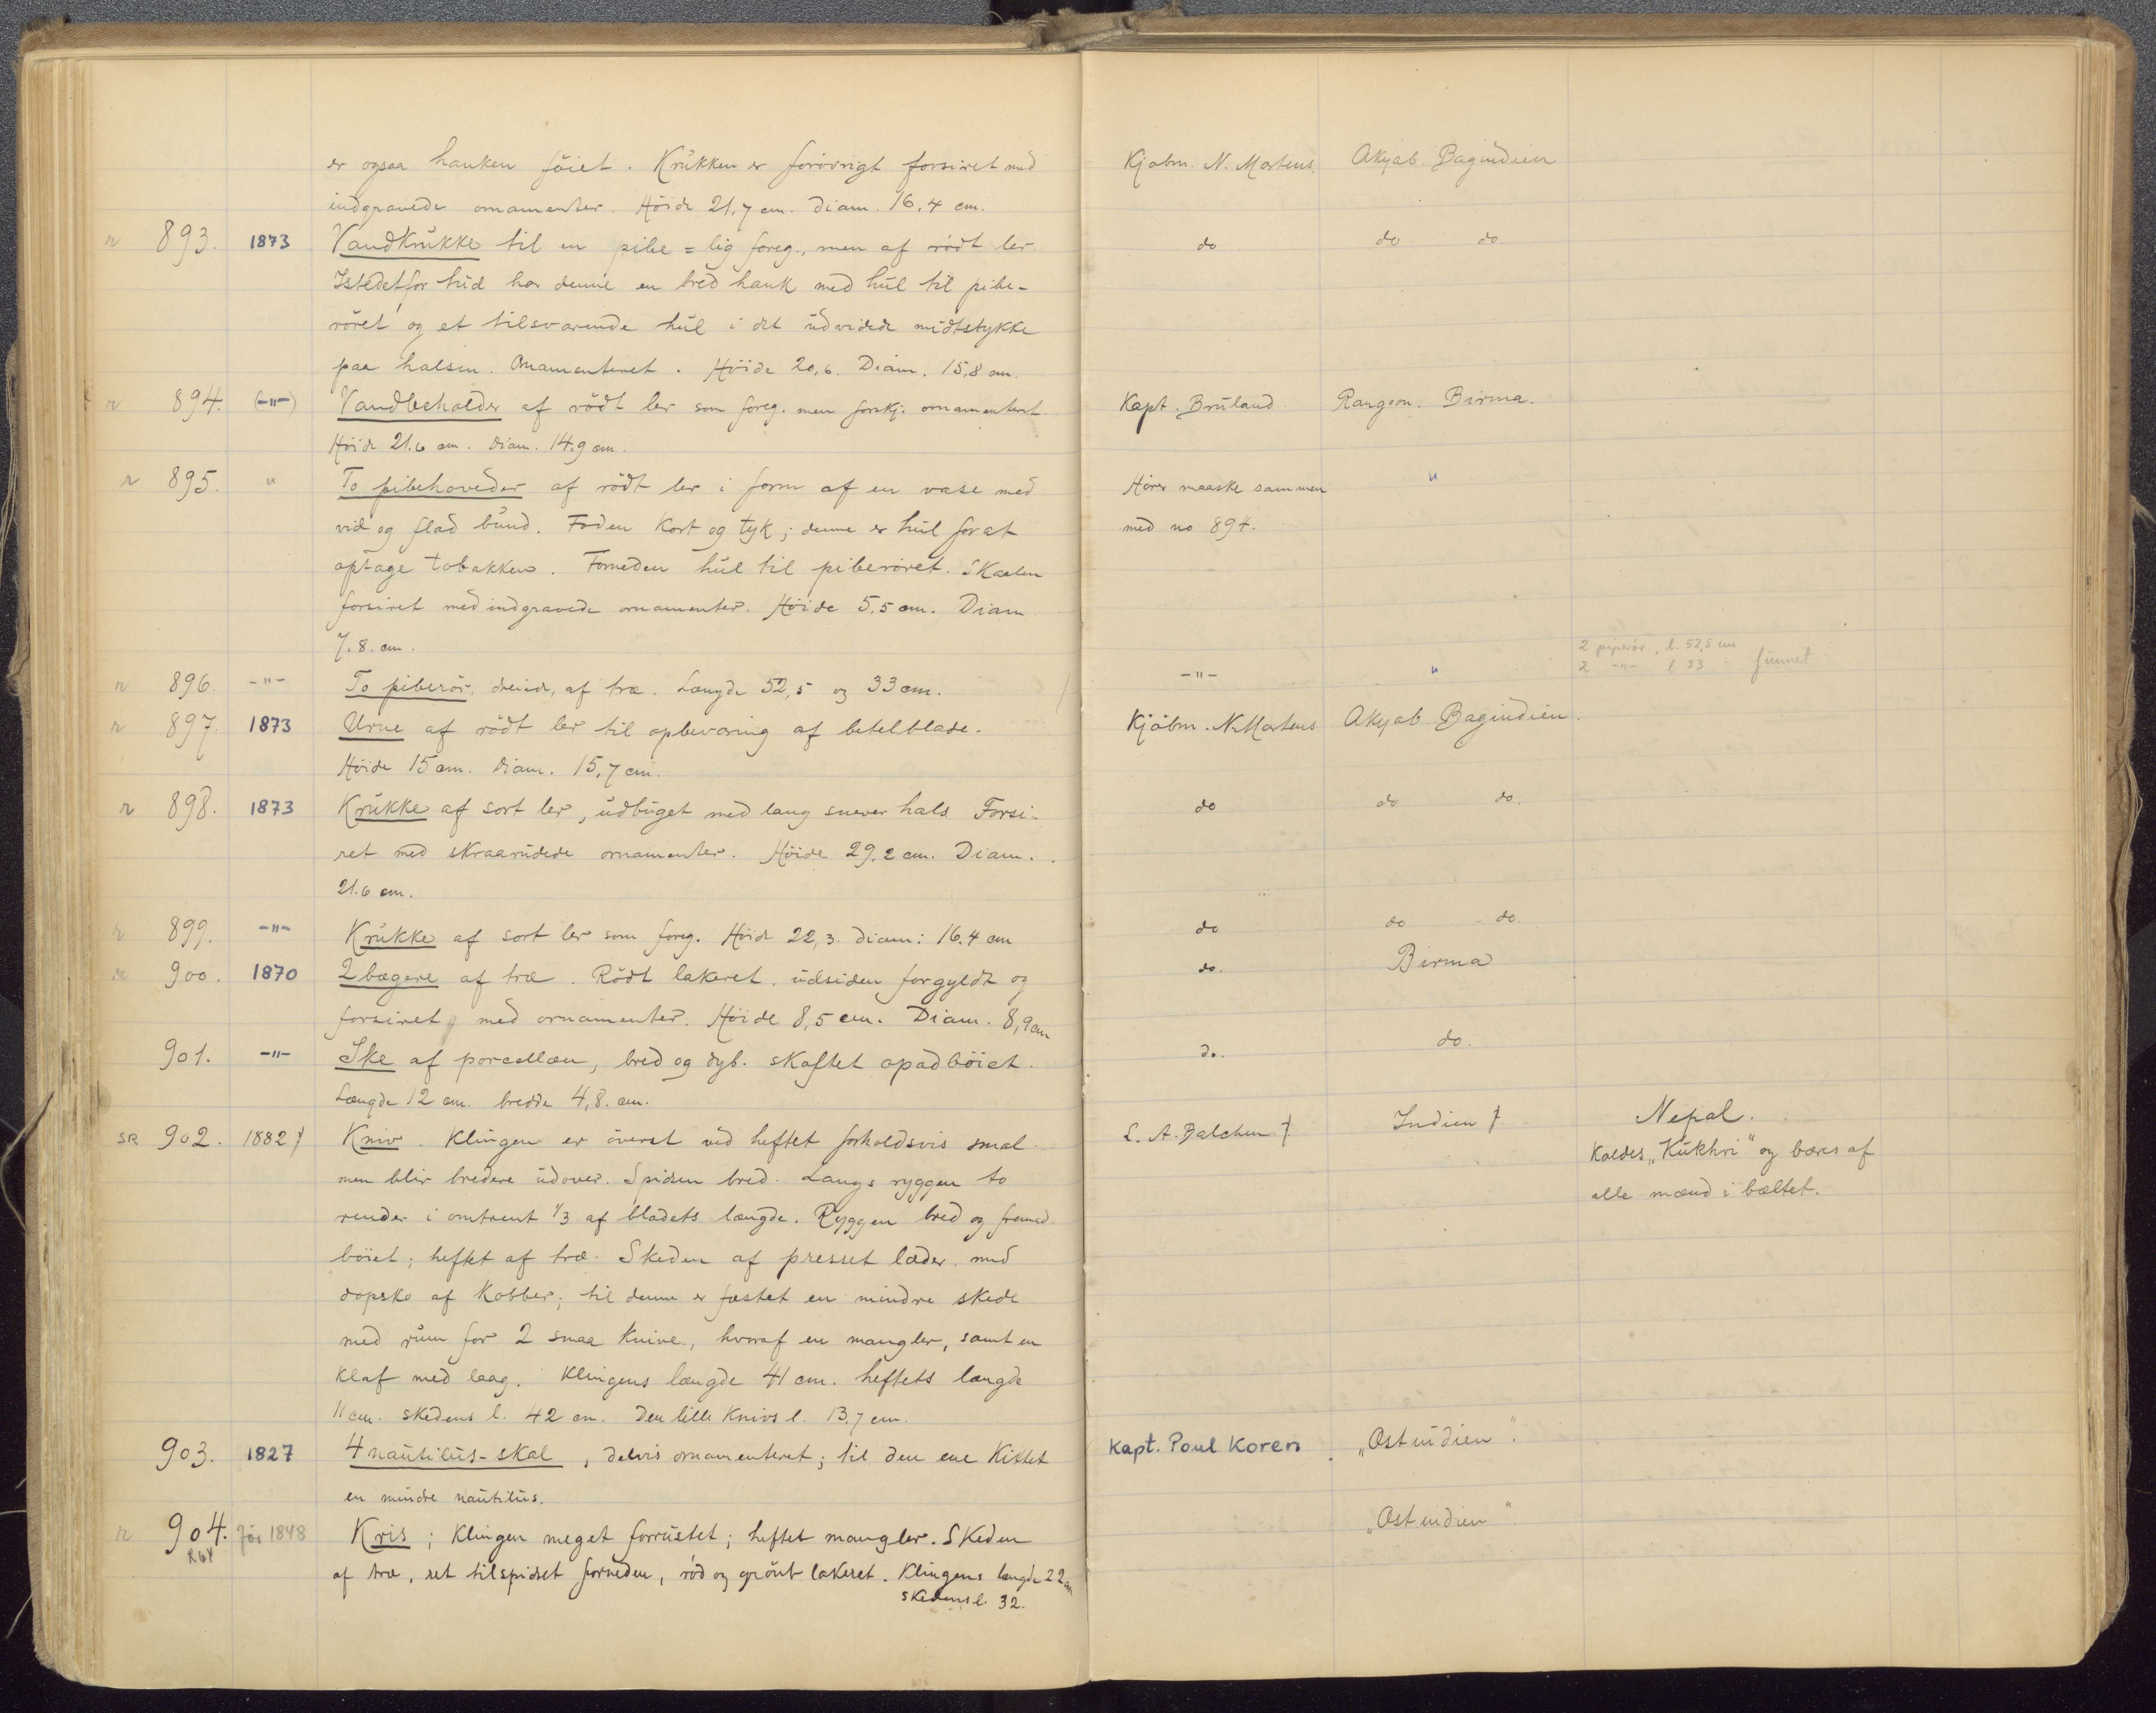 er ogsaa hanken föiet. Krukken er forövrigt forsiret med Kjøbm. N. Martens. Akyab. Bagindien
indgravede ornamenter. Höide 21,7 cm. Diam. 16,4 cm.
r 893. 1873 Vandkrukke til en pibe = lig foreg., men af rödt ler do do do.
Istedetfor tud har denne en bred hank med hul til pibe-
röret og et tilsvarende hul i det udvidede midtstykke
paa halsen. Ornamenteret. Höide 20,6. Diam. 15,8 cm.
r 894. (-"-) Vandbeholder af rödt ler som foreg. men forskj. ornamenteret Kapt. Bruland Rangoon. Birma.
Höide 21.6 cm. Diam. 14.9 cm.
r 895. " To pibehoveder af rödt ler i form af en vase med Hörer maaske sammen "
vid og flad bund. Foden kort og tyk; denne er hul for at med no 894.
optage tobakken. Forneden hul til piberöret. Skaalen
forsiret med indgravede ornamenter. Höide 5,5 cm. Diam
7.8. cm.
2 piperör, l. 52,5 cm
2 -"- l 33 - funnet
r 896. -"- To piberör, dreiede, af træ. Længde 52,5 og 33 cm. -"- "
r 897. 1873 Urne af rödt ler til opbevaring af betelblade. Kjöbm. N. Martens Akyab Bagindien.
Höide 15 cm. Diam. 15,7 cm.
r 898. 1873 Krukke af sort ler, udbuget med lang snever hals Forsi- do do do.
ret med skraarudede ornamenter. Höide 29.2 cm. Diam.
21.6 cm.
r 899. -"- Krukke af sort ler som foreg. Höide 22,3. Diam: 16.4 cm do do do.
r 900. 1870 2 bægere af træ. Rödt lakeret. udsiden forgyldt og do. Birma
forsiret med ornamenter. Höide 8,5 cm. Diam. 8,9 cm
901. -"- Ske af porcellæn, bred og dyb. skaftet opadböiet. do. do.
Længde 12 cm. bredde 4,8. cm.
SR 902. 1882 Kniv. Klingen er överst ved heftet forholdsvis smal L. A. Balchen Indien Nepal.
men blir bredere udover. Spidsen bred. Langs ryggen to Kaldes "Kukhri" og bæres af
render i omtrent 1/3 af bladets længde. Ryggen bred og fremad alle mænd i bæltet.
böiet; heftet af træ. Skeden af presset læder med
dopsko af Kobber; til denne er fæstet en mindre skede
med rum for 2 smaa knive., hvoraf en mangler, samt en
klaf med laag. Klingens længde 41 cm. heftets længde
11 cm. skedens l. 42 cm. Den lille knivs l. 13.7 cm.
903. 1827 4 nautilus-skal, delvis ornamenteret; til den ene kittet Kapt. Poul Koren "Ostindien".
en mindre nautilus.
r 904. för 1848 Kris; Klingen meget forrustet; heftet mangler. Skeden "Ostindien"
R64 af træ, ret tilspidset forneden, röd og grönt lakeret. Klingens længde 22 cm
skedens l. 32.